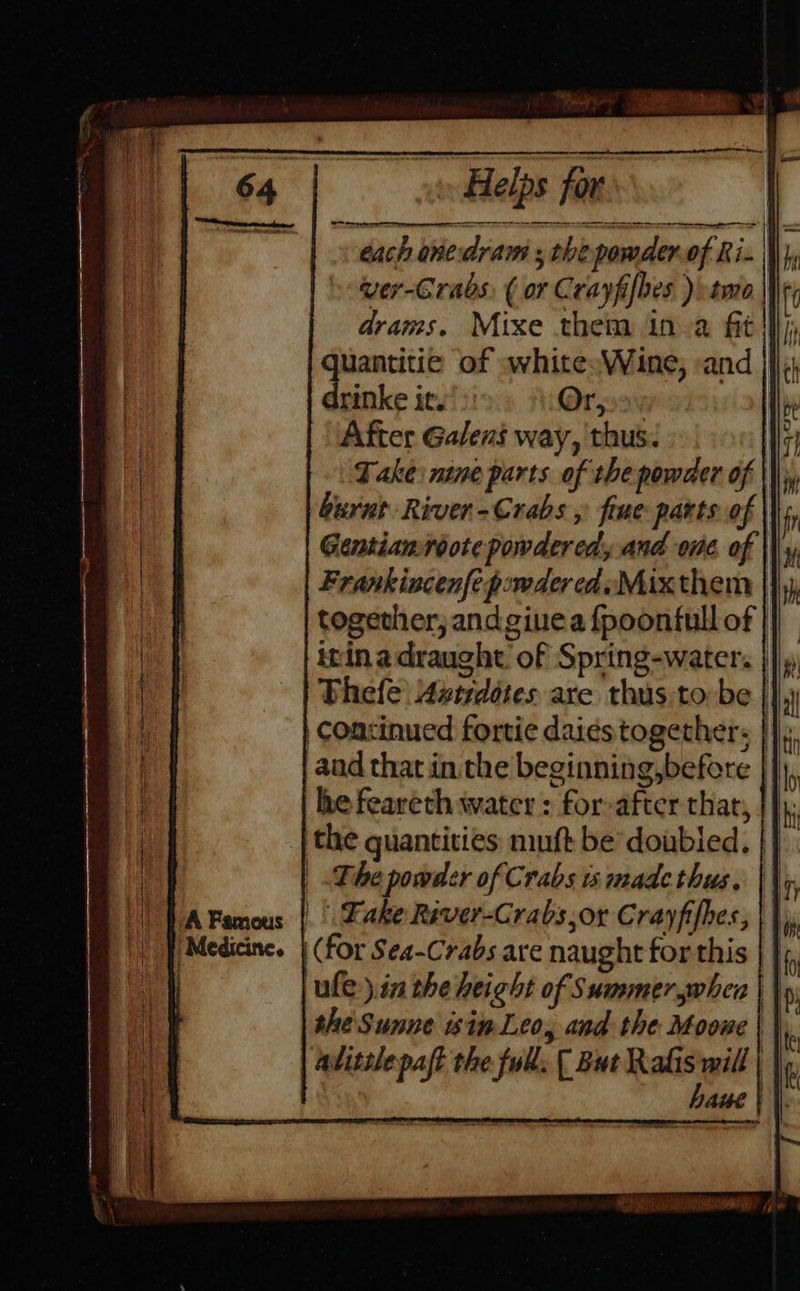 64
Helps for
each one dram ; the powder of Ri-
ver-Crabs ( or Crayfiſhes ) two
drams. Mixe them in a fit
quantitie of white Wine, and
drinke it. Or,
After Galens way, thus.
Take nine parts of the powder of
burnt River-Crabs , fiue parts of
Gentian roote powdered, and one of
Frankincenſe powdered. Mix them
together, and giue a ſpoonfull of
it in a draught of Spring-water.
Theſe Antidotes are thus to be
continued fortie daies together;
and that in the beginning, before
he feareth water : for after that,
the quantities muſt be doubled.
The powder of Crabs is made thus.
A Famous
Medicine.
Take River-Crabs, or Crayfiſhes,
(for Sea-Crabs are naught for this
uſe ) in the height of Summer, when
the Sunne is in Leo, and the Moone
a little paſt the full. ( But Raſis will
haue